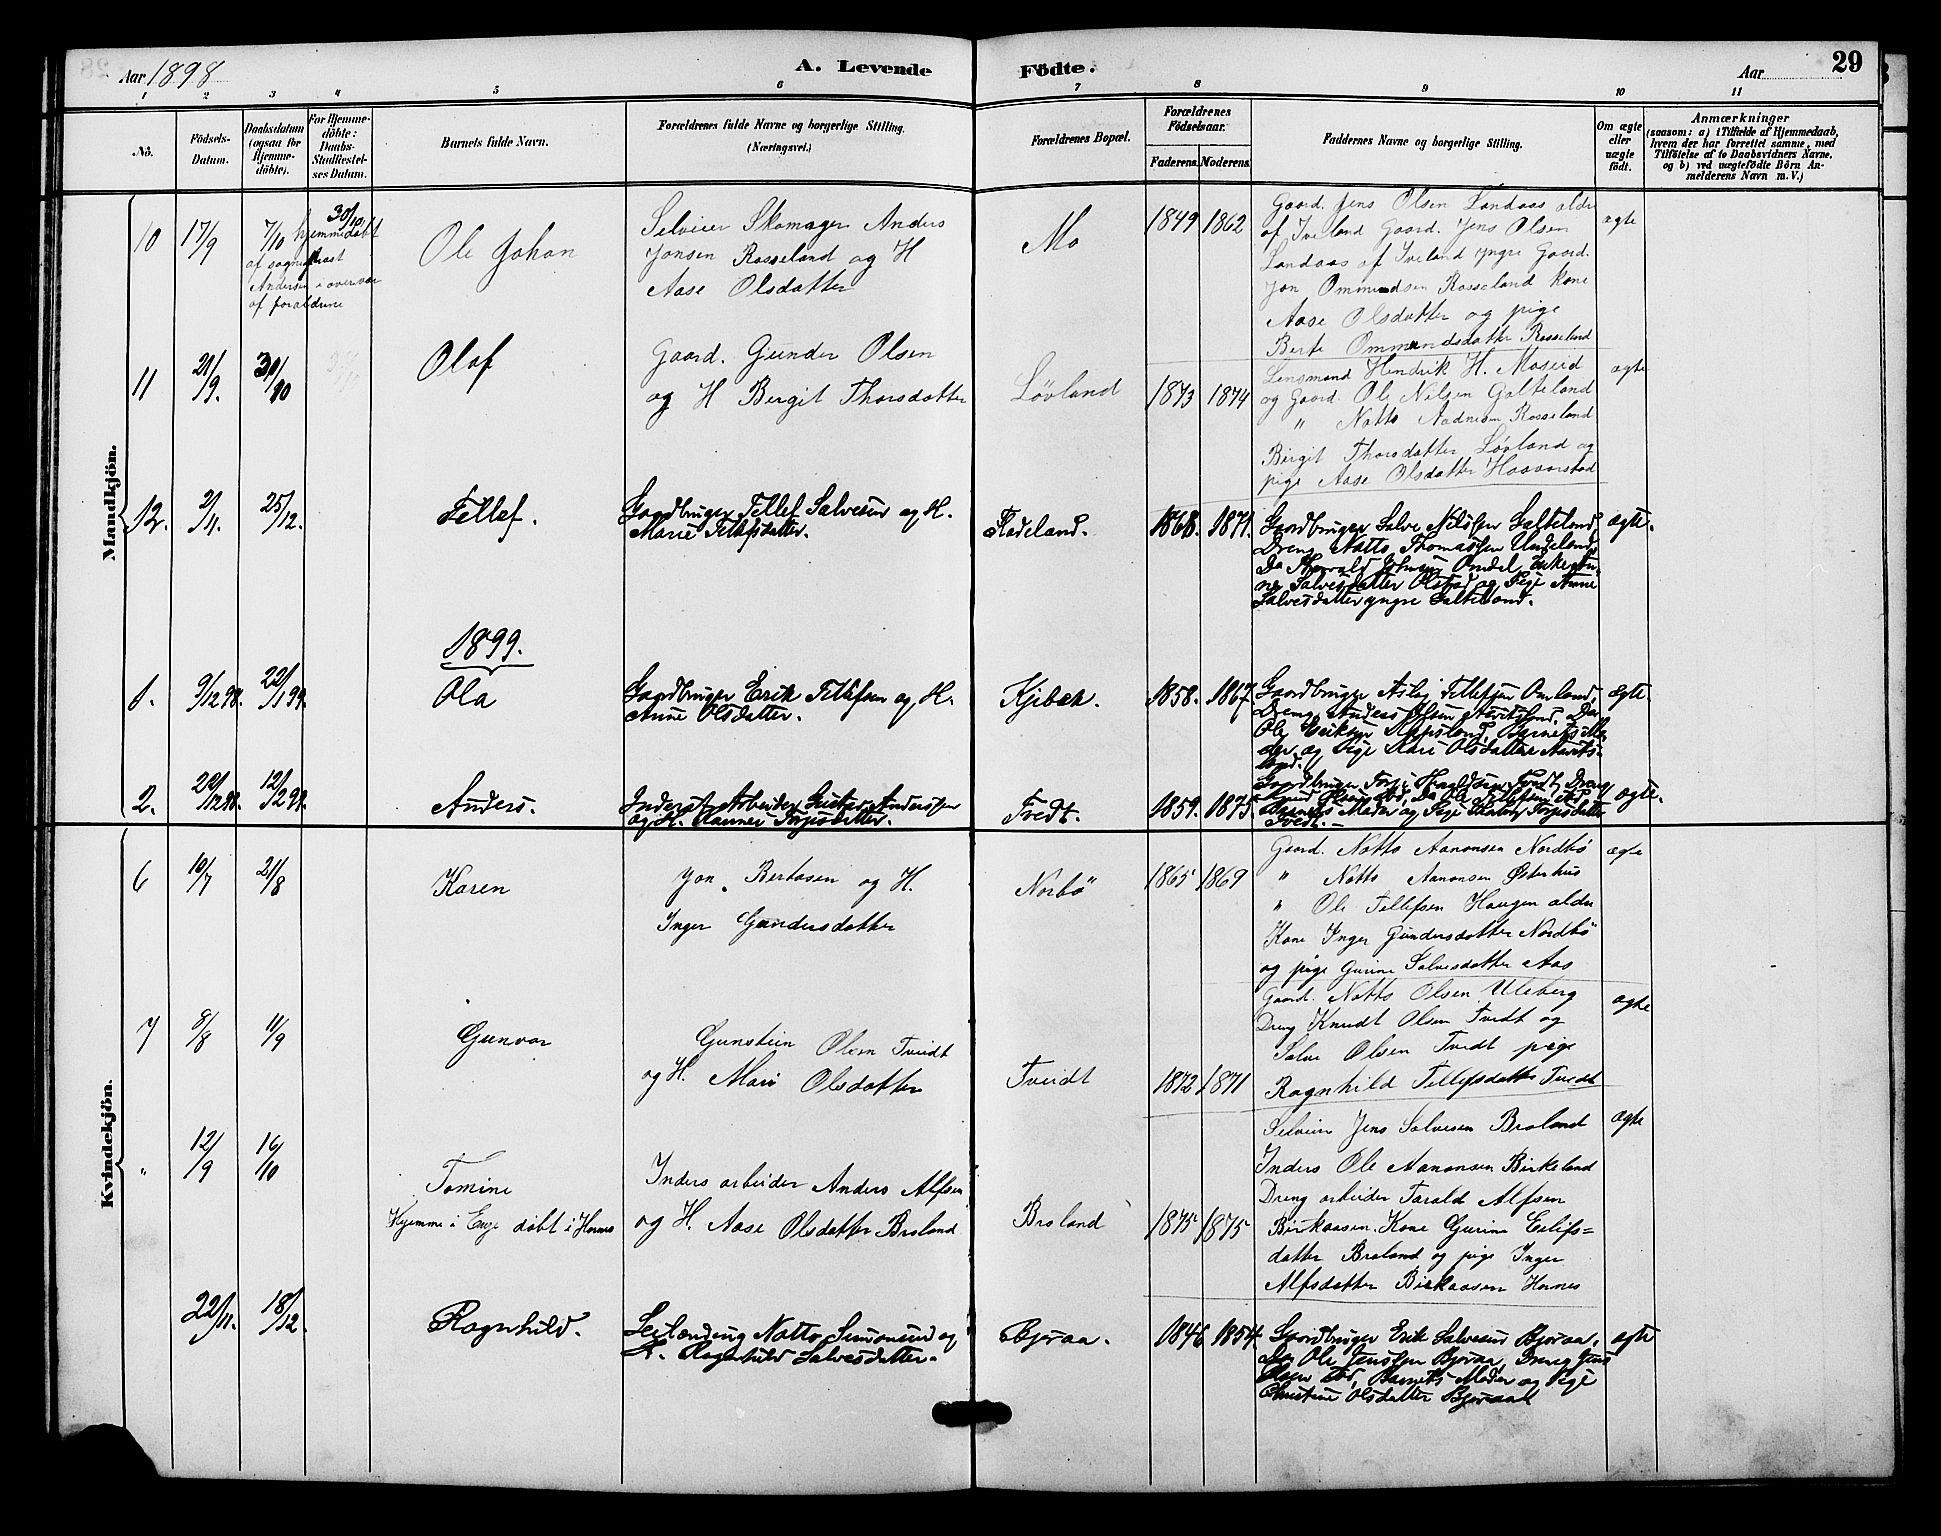 Aar 1898
A. Levende
Födte.
Aar
29
1 2 3 4 5 6 7 8 9 10 11
No.
Födsels-
Datum.
Daabsdatum
(ogsaa for
Hjemme-
döbte).
For Hjemme-
döbte:
Daabs-
Stadfæstel-
ses Datum.
Barnets fulde Navn.
Forældrenes fulde Navne og borgerlige Stilling.
(Næringsvei.)
Forældrenes Bopæl.
Forældrenes
Födselsaar.
Faderens. Moderens.
Faddernes Navne og borgerlige Stilling.
Om ægte
eller
uægte
födt.
Anmærkninger
(saasom: a) i Tilfælde af Hjemmedaab,
hvem der har forrettet samme, med
Tilföielse af to Daabsvidners Navne,
og b) ved uægtefödte Börn An-
melderens Navn m. V.)
Mandkjön.
10 17/9 7/10 hjemmedøbt
30/10
af sogneprest
Andersen i overvær
af forældrene
Ole Johan
Selveier Skomager Anders
Jonsen Rosseland og H
Aase Olsdatter
Mo
1849 1862
Gaard. Jens Olsen Landaas aldre
af Iveland Gaard. Jens Olsen
Landaas af Iveland yngre Gaard.
Jon Ommundsen Rosseland kone
Aase Olsdatter og pige
Berte Ommundsdatter Rosseland
ægte
11 21/9. 30/10
Olaf
Gaard. Gunder Olsen
og H Bergit Thorsdatter
Løvland
1873 1874
Lensmand Hendrik H. Moseid
og Gaard Ole Nilsen Galteland
" Notto Aadnesen Rosseland
Birgit Thorsdatter Løvland og
pige Aase Olsdatter Haavorstad
ægte
12. 2/11. 25/12.
Tellef.
Gaardbruger Tellef Salvesen og H.
Marie Tellefsdatter.
Fladeland.
1868. 1871.
Gaardbruger Salve Nilssen Galteland,
Dreng Notto Thomassen Undeland,
Do Harald Johnsen Omdal, Enke An-
ne Salvesdatter Olstad og Pige Anne
Salvesdatter yngre Galteland.
ægte.
1899.
1. 9/12 98. 22/1 99.
Ola
Gaardbruger Erik Tellefsen og H.
Anne Olsdatter.
Kjebæk.
1858. 1867.
Gaardbruger Aslag Tellefsen Omland,
Dreng Anders Olsen
Ole Eriksen Barnets Mo-
der og Pige Kari Olsdatter
land.
ægte
2. 20/12 98. 12/2 99.
Anders.
Inderst Arbeider Gustav Anderssen
og H. Torjusdatter.
Tvedt.
1859. 1875.
Gaardbruger Haraldsen Tvedt, Dreng
Barnets Moder og Pige Torjusdatter
Tvedt.
ægte.
Kvindekjön.
6 10/7 21/8
Karen
Jon Bertosen og H.
Inger Gundersdatter
Norbö
1865 1869
Gaard. Notto Aanonsen Nordbö
" Notto Aanonsen Østerhus
" Ole Tellefsen Haugen aldre
Kone Inger Gundersdatter Nordbö
og pige Gurine Salvesdatter Aas
ægte
7 8/8 11/9
Gunvor
Gunstein Olsen Tveidt
og H. Mari Olsdatter
Tveidt
1872 1871
Gaard. Notto Olsen Uleberg
Dreng Knudt Olsen Tvedt og
Salve Olsen Tvedt pige
Ragnhild Tellefsdatter Tvedt
ægte
" 12/9 16/10
Tomine
Hjemme i Enge døbt i Hornes
Inders arbeider Anders Alfsen
og H. Aase Olsdatter Broland
Broland
1875 1875
Selveier Jens Salvesen Broland
Inders Ole Aanonsen Birkeland
Dreng arbeider Tarald Alfsen
Birkaasen. Kone Gurine Eilifs=
datter Broland og pige Inger
Alfsdatter Birkaasen Hornes
ægte
22/11. 18/12.
Ragnhild.
Leilænding Notto Simonsen og
H. Ragnhild Salvesdatter.
Bjoraa.
1846 1854.
Gaardbruger Erik Salvesen Bjoraa,
Do Ole Jenssen Bjoraa, Dreng Jens
Olsen Barnets Moder og Pige
Christine Olsdatter Bjoraa.
ægte